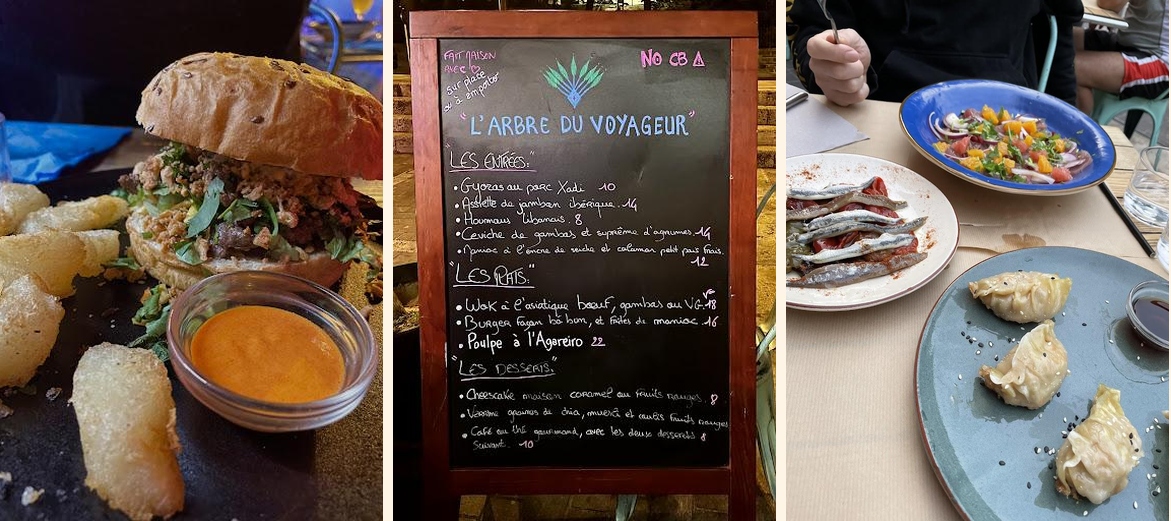 FAIT MAISON
AVEC
sur place
ou à emporter
No CB
"L'ARBRE DU VOYAGEUR"
"LES ENTRÉES:"
• Gyozas au porc Xadi 10
• Assiette de jambon ibérique. 14
• Houmous libanais. 8
• Ceviche de gambas et suprême d'agrumes. 14
à l'encre de seiche et calamar petit pois frais.
12
"LES PLATS:"
• Wok à l'asiatique bœuf, gambas ou VG. 18
• Burger façon bò bún, et frites de manioc. 16
• Poulpe à l'Agareiro 22
"LES DESSERTS:"
• Cheescake maison caramel ou fruits rouges. 8
• Verrine graines de chia, muesli et coulis fruits rouges
• Café ou thé gourmand, avec les deux desserts 8
Suivant. 10